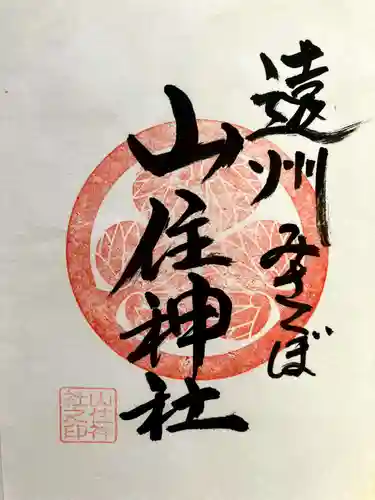 遠州みさくぼ
山住神社
山住神
社之印